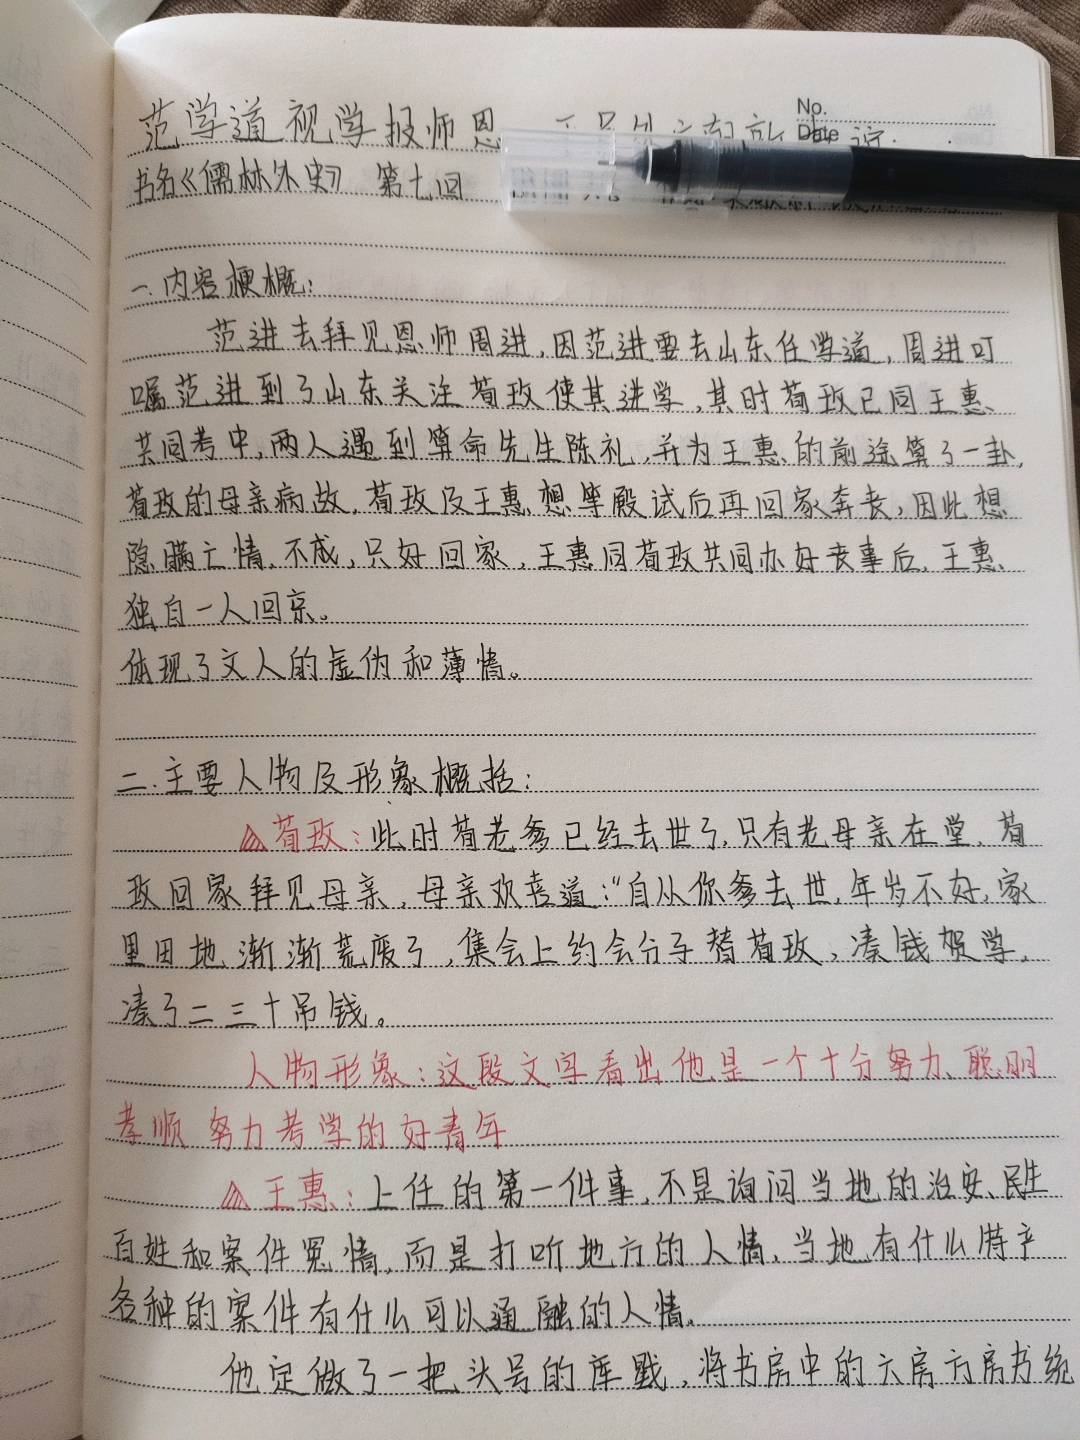 No.
Date
范学道视学报师恩
书名《儒林外史》 第七回
一.内容梗概:
范进去拜见恩师周进,因范进要去山东任学道,周进叮
嘱范进到了山东关注荀玫使其进学,其时荀玫已同王惠
共同考中,两人遇到算命先生陈礼,并为王惠的前途算了一卦,
荀玫的母亲病故,荀玫及王惠想等殿试后再回家奔丧,因此想
隐瞒亡情,不成,只好回家,王惠同荀玫共同办好丧事后,王惠
独自一人回京。
体现了文人的虚伪和薄情。
二.主要人物及形象概括:
荀玫:此时荀老爹已经去世了,只有老母亲在堂,荀
玫回家拜见母亲,母亲欢喜道:“自从你爹去世,年岁不好,家
里田地渐渐荒废了,集会上约会分子替荀玫,凑钱贺学,
凑了二三十吊钱。
人物形象:这段文字看出他是一个十分努力、聪明
孝顺 努力考学的好青年
王惠:上任的第一件事,不是询问当地的治安、民生
百姓和案件冤情,而是打听地方的人情,当地有什么特产
各种的案件有什么可以通融的人情。
他定做了一把头号的库戥,将书房中的六房方房书统